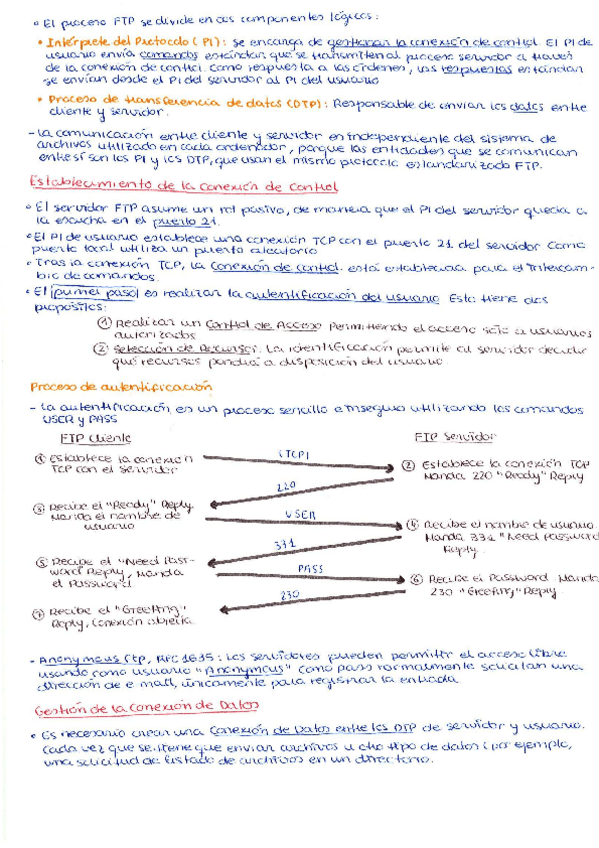 • El proceso FTP se divide en dos componentes lógicos:
• Intérprete del Protocolo (PI): se encarga de gestionar la conexión de control. El PI de
usuario envía comandos estándar que se transmiten al proceso servidor a través
de la conexión de control. Como respuesta a las órdenes, las respuestas estándar
se envían desde el PI del servidor al PI del usuario
• Proceso de transferencia de datos (DTP): Responsable de enviar los datos entre
cliente y servidor.
- La comunicación entre cliente y servidor es independiente del sistema de
archivos utilizado en cada ordenador, porque las entidades que se comunican
entre sí son los PI y los DTP, que usan el mismo protocolo estandarizado FTP.
Establecimiento de la conexión de control
• El servidor FTP asume un rol pasivo, de manera que el PI del servidor queda a
la escucha en el puerto 21.
• El PI de usuario establece una conexión TCP con el puerto 21 del servidor como
puerto local utiliza un puerto aleatorio
• Tras la conexión TCP, la conexión de control está establecida para el intercam-
bio de comandos.
• El primer paso es realizar la autentificación del usuario. Esto tiene dos
propósitos:
① Realizar un Control de Acceso permitiendo el acceso solo a usuarios
autorizados
② Selección de Recursos. La identificación permite al servidor decidir
qué recursos pondrá a disposición del usuario
Proceso de autentificación
- La autentificación es un proceso sencillo e inseguro utilizando los comandos
USER y PASS
FTP Cliente FTP Servidor
① Establece la conexión
TCP con el servidor
(TCP)
② Establece la conexión TCP
Manda 220 "Ready" Reply
220
③ Recibe el "Ready" Reply.
Manda el nombre de
usuario
USER
④ Recibe el nombre de usuario
Manda 331 "Need Password
Reply.
331
⑤ Recibe el "Need Pass-
word Reply, Manda
el Password.
PASS
⑥ Recibe el Password. Manda
230 "Greeting" Reply.
230
⑦ Recibe el "Greeting"
Reply, conexión abierta.
- Anonymous ftp, RFC 1635: Los servidores pueden permitir el acceso libre
usando como usuario "Anonymous" como pass normalmente solicitan una
dirección de e-mail, únicamente para registrar la entrada
Gestión de la Conexión de Datos
• Es necesario crear una Conexión de Datos entre los DTP de servidor y usuario.
cada vez que se tiene que enviar archivos u otro tipo de datos (por ejemplo,
una solicitud de listado de archivos en un directorio.